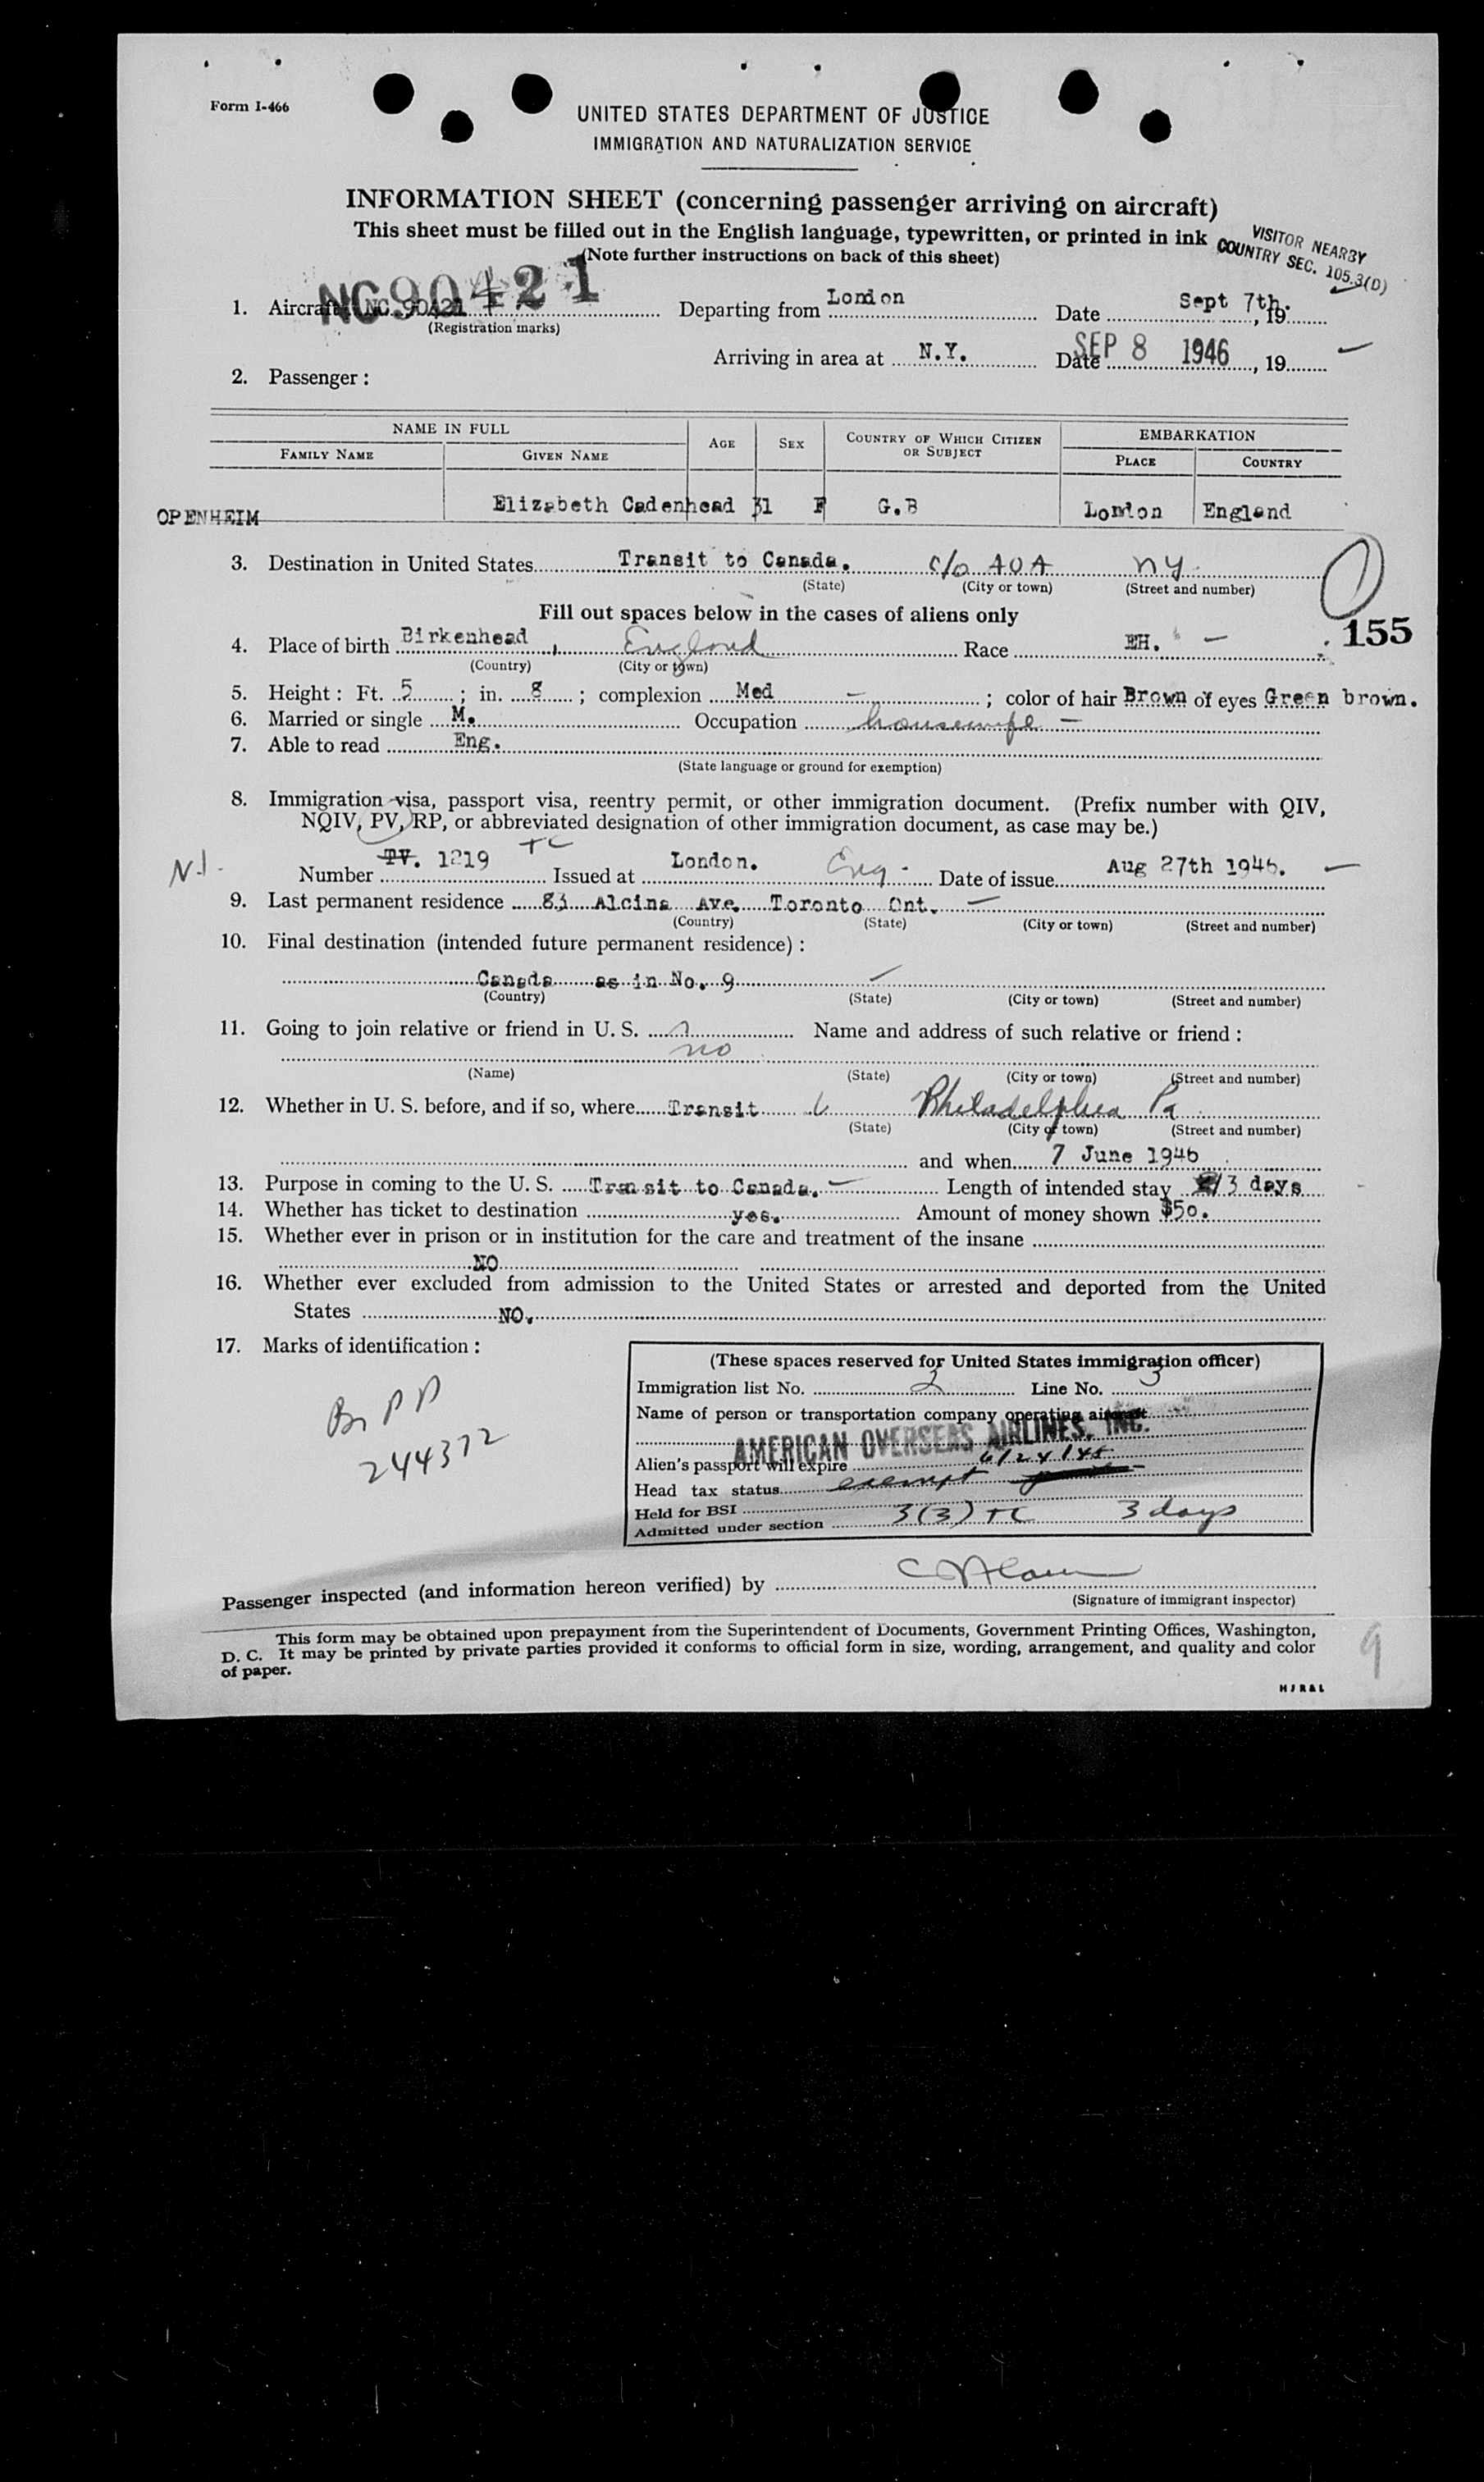 Form I-466
UNITED STATES DEPARTMENT OF JUSTICE
IMMIGRATION AND NATURALIZATION SERVICE
INFORMATION SHEET (concerning passenger arriving on aircraft)
This sheet must be filled out in the English language, typewritten, or printed in ink
(Note further instructions on back of this sheet)
VISITOR NEARBY
COUNTRY SEC. 105.3(D)
NC90421
1. Aircraft NC. 90421 Departing from London Date Sept 7th. , 19
(Registration marks)
Arriving in area at N.Y. Date SEP 8 1946 , 19
2. Passenger :
NAME IN FULL AGE SEX COUNTRY OF WHICH CITIZEN OR SUBJECT EMBARKATION
FAMILY NAME GIVEN NAME PLACE COUNTRY
OPENHEIM Elizabeth Cadenhead 31 F G.B London England
3. Destination in United States Transit to Canada. c/o AOA NY
(State) (City or town) (Street and number)
155
Fill out spaces below in the cases of aliens only
4. Place of birth Birkenhead , England Race EH. -
(Country) (City or town)
5. Height : Ft. 5 ; in. 8 ; complexion Med - ; color of hair Brown of eyes Green brown.
6. Married or single M. Occupation housewife -
7. Able to read Eng.
(State language or ground for exemption)
8. Immigration visa, passport visa, reentry permit, or other immigration document. (Prefix number with QIV,
NQIV, PV, RP, or abbreviated designation of other immigration document, as case may be.)
Number TV. 1219 TC Issued at London. Eng. Date of issue Aug 27th 1946. -
9. Last permanent residence 83 Alcina Ave. Toronto Ont. -
(Country) (State) (City or town) (Street and number)
10. Final destination (intended future permanent residence) :
Canada as in No. 9
(Country) (State) (City or town) (Street and number)
11. Going to join relative or friend in U. S. Name and address of such relative or friend :
no
(Name) (State) (City or town) (Street and number)
12. Whether in U. S. before, and if so, where Transit Philadelphia Pa
(State) (City or town) (Street and number)
and when 7 June 1946
13. Purpose in coming to the U. S. Transit to Canada. - Length of intended stay 3 days
14. Whether has ticket to destination yes. Amount of money shown $50.
15. Whether ever in prison or in institution for the care and treatment of the insane
NO
16. Whether ever excluded from admission to the United States or arrested and deported from the United
States NO.
17. Marks of identification :
Br PP
244372
(These spaces reserved for United States immigration officer)
Immigration list No. 2 Line No. 3
Name of person or transportation company operating aircraft
AMERICAN OVERSEAS AIRLINES, INC.
Alien's passport will expire 6/24/48
Head tax status exempt
Held for BSI
Admitted under section 3(3) TC 3 days
Passenger inspected (and information hereon verified) by
(Signature of immigrant inspector)
This form may be obtained upon prepayment from the Superintendent of Documents, Government Printing Offices, Washington,
D. C. It may be printed by private parties provided it conforms to official form in size, wording, arrangement, and quality and color
of paper.
9
HJR&L